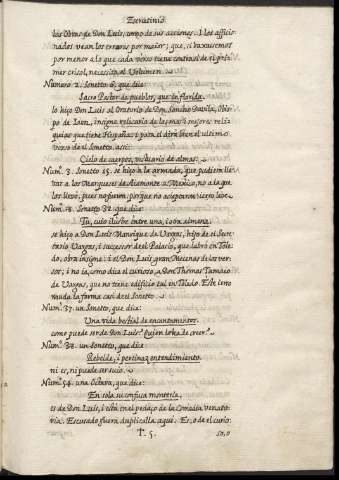 Escrutinio
las Obras de Don Luis, como de sus acciones. I los afficio
nados vean los errores por maior; que, si baxassemos
por menor a lo que cada verso tiene contra si del prim
mer crisol, necessita al Volumen.
Numero 2. Sonetto 6. que dice
Sacro Pastor de pueblos, que en florida.
lo hijo Don Luis al Oratorio de Don Sancho Davila, Obis
po de Iaen, insigne relicario de las mas mejores reli
quias que tiene Hespaña: i para el dirá bien el ultimo
verso de el Sonetto, assi:
Cielo de cuerpos, vestuario de almas.
Num.º 3. Sonetto 15. se hijo à la armada, que pudiera lle
var a los Marqueses de Aiamonte a Mexico, no a la que
los llevó, pues no fueron, porque no accepto el virreinato.
Num.º 8. Sonetto 32. que dice
Tu, cuio illustre entre una, i otra almena,
se hijo a Don Luis Manrique de Vargas, hijo de el Secre
tario Vargas, i successor de el Palacio, que labró en Tole
do, obra insigne: i el Don Luis gran Mecenas de los ver
sos; i no ia, como dice el curioso a Don Thomas Tamaio
de Vargas, que no tiene edificio tal en Toledo. Este ierro
muda la forma casi de el Sonetto.
Num.º 37. un Sonetto, que dice:
Una vida bestial de encantamentos.
como puede ser de Don Luis? Quien lo ha de creer?
Num.º 38. un Sonetto, que dice
Rebelde, i pertinaz entendimiento.
ni es, ni puede ser suio.
Num.º 54. una Octava, que dice:
En sola su confusa monteria.
es de Don Luis, i està en el pedaço de la Comedia venato
ria. Escusado fuera duplicalla aqui. Es, o de el curio
T. 5.
so, o